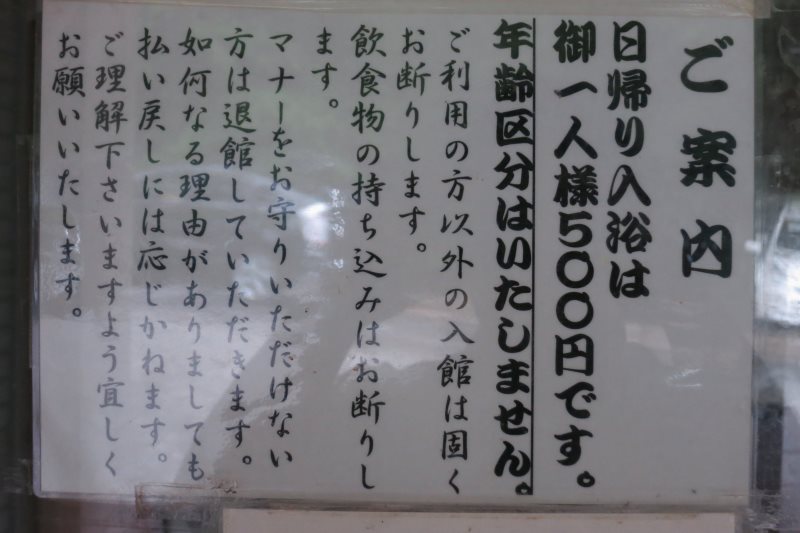 ご案内
日帰り入浴は
御一人様500円です。
年齢区分はいたしません。
ご利用の方以外の入館は固く
お断りします。
飲食物の持ち込みはお断りし
ます。
マナーをお守りいただけない
方は退館していただきます。
如何なる理由がありましても
払い戻しには応じかねます。
ご理解下さいますよう宜しく
お願いいたします。